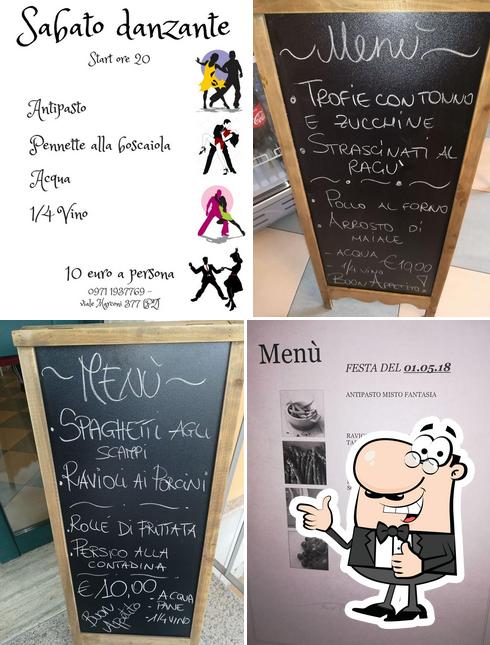 Sabato danzante
Start ore 20
Antipasto
Pennette alla boscaiola
Acqua
1/4 Vino
10 euro a persona
0971 1937769 -
viale Marconi 377 (PZ)
~ Menù ~
TROFIE CON TONNO
E ZUCCHINE
STRASCINATI AL
RAGU'
POLLO AL FORNO
ARROSTO DI
MAIALE
- ACQUA
€ 10,00
1/4 VINO
BUON APPETITO
~ MENÙ ~
SPAGHETTI AGLI
SCAMPI
RAVIOLI AI PORCINI
ROLLE' DI FRITTATA
PERSICO ALLA
CONTADINA
€ 10,00
- ACQUA
- PANE
- 1/4 VINO
BUON
APPETITO
Menù
FESTA DEL 01.05.18
ANTIPASTO MISTO FANTASIA